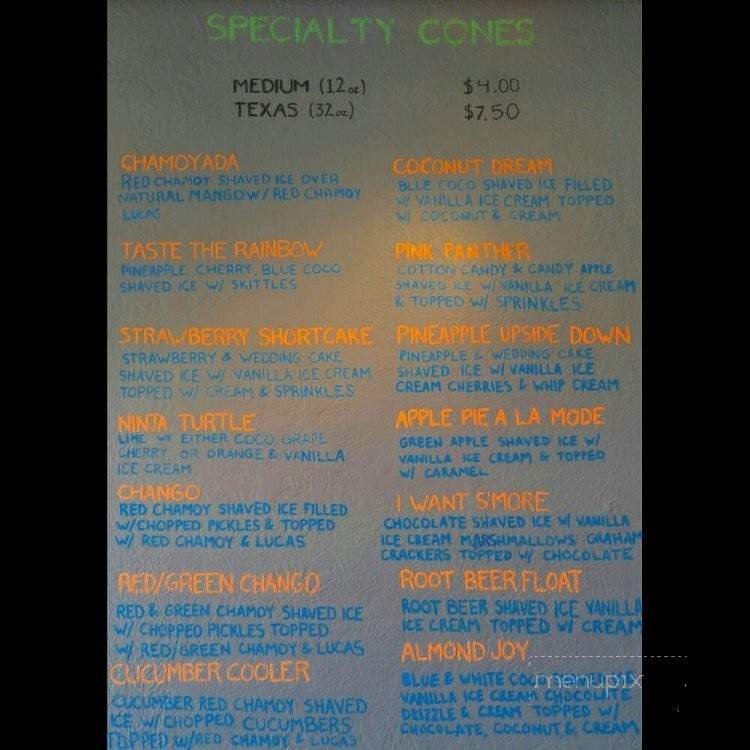 SPECIALTY CONES
MEDIUM (12oz) $4.00
TEXAS (32oz) $7.50
CHAMOYADA
RED CHAMOY SHAVED ICE OVER
NATURAL MANGO W/ RED CHAMOY
LUCAS
TASTE THE RAINBOW
PINEAPPLE, CHERRY, BLUE COCO
SHAVED ICE W/ SKITTLES
STRAWBERRY SHORTCAKE
STRAWBERRY & WEDDING CAKE
SHAVED ICE W/ VANILLA ICE CREAM
TOPPED W/ CREAM & SPRINKLES
NINJA TURTLE
LIME W/ EITHER COCO, GRAPE
CHERRY, OR ORANGE & VANILLA
ICE CREAM
CHANGO
RED CHAMOY SHAVED ICE FILLED
W/CHOPPED PICKLES & TOPPED
W/ RED CHAMOY & LUCAS
RED/GREEN CHANGO
RED & GREEN CHAMOY SHAVED ICE
W/ CHOPPED PICKLES TOPPED
W/ RED/GREEN CHAMOY & LUCAS
CUCUMBER COOLER
CUCUMBER RED CHAMOY SHAVED
ICE W/ CHOPPED CUCUMBERS
TOPPED W/RED CHAMOY & LUCAS
COCONUT DREAM
BLUE COCO SHAVED ICE FILLED
W/ VANILLA ICE CREAM TOPPED
W/ COCONUT & CREAM
PINK PANTHER
COTTON CANDY & CANDY APPLE
SHAVED ICE W/ VANILLA ICE CREAM
& TOPPED W/ SPRINKLES
PINEAPPLE UPSIDE DOWN
PINEAPPLE & WEDDING CAKE
SHAVED ICE W/ VANILLA ICE
CREAM CHERRIES & WHIP CREAM
APPLE PIE A LA MODE
GREEN APPLE SHAVED ICE W/
VANILLA ICE CREAM & TOPPED
W/ CARAMEL
I WANT S'MORE
CHOCOLATE SHAVED ICE W/ VANILLA
ICE CREAM MARSHMALLOWS GRAHAM
CRACKERS TOPPED W/ CHOCOLATE
ROOT BEER FLOAT
ROOT BEER SHAVED ICE VANILLA
ICE CREAM TOPPED W/ CREAM
ALMOND JOY
BLUE & WHITE
menupix
VANILLA ICE CREAM CHOCOLATE
DRIZZLE & CREAM TOPPED W/
CHOCOLATE, COCONUT & CREAM